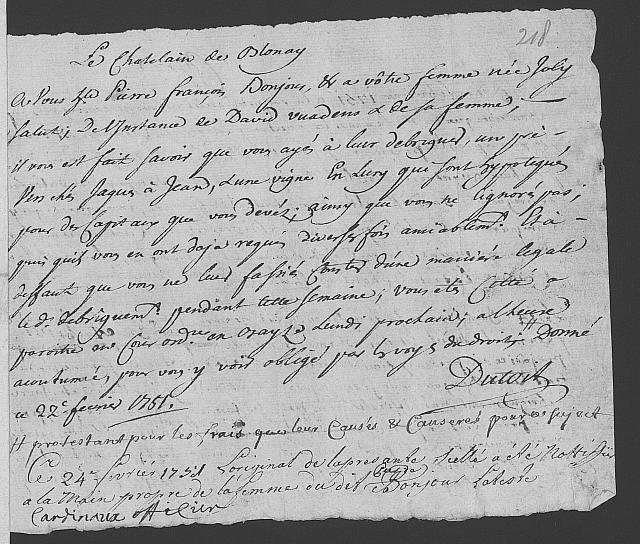 218
Le Chatelain de Blonay
A Vous Hte Pierre françois Bonjour, & a vôtre femme née Joly
salut; De l'Instance de David vuadens & de sa femme;
il vous est fait savoir que vous ayés à leur debriguer, un pré
en chés Jaques à Jean, & une vigne En Lury que sont hypotequés
pour des Capitaux que vous devéz; ainsy que vous ne l'ignorés pas;
puis quils vous en ont deja requis diverses fois amiablemt. Et à
deffaut que vous ne leur fassiés Conster d'une maniére legale
le dt debriguemt. pendant cette semaine; vous etes Cotté a
paroitre en Cour ordre. en Lundi prochain; a l'heure
acoutumée, pour vous y voir obligé par les voyes de droit. # Donné
ce 22e. fevrier 1751.
Dutoit
# protestant pour les frais que leur Causés & Causerés pour ce sujet
Ce 24e fevrier 1751 L'original de la presante scellé a été Nottifiée
a la Main propre de la femme du dit Bonjour L'ateste
Cardinaux officier